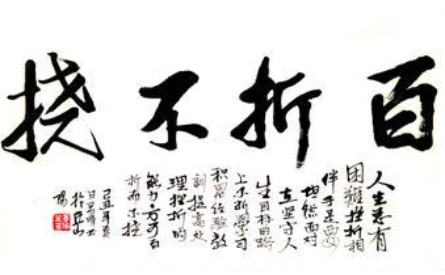 百折不挠
人生总有
困难挫折相
伴于是要
坦然面对
在坚守人
生目标的路
上不断学习
积累经验教
训提高处
理挫折的
能力方可百
折而不挠
己丑年夏
日
山